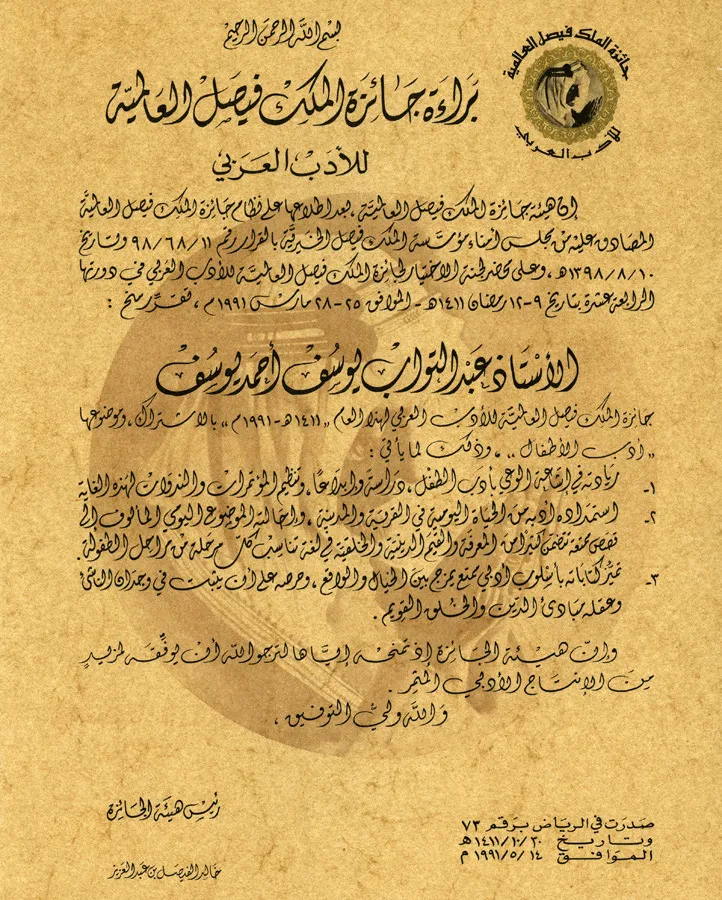 بسم الله الرحمن الرحيم
جائزة الملك فيصل العالمية
للأدب العربي
براءة جائزة الملك فيصل العالمية
للأدب العربي
إن هيئة جائزة الملك فيصل العالمية، بعد اطلاعها على نظام جائزة الملك فيصل العالمية
المصادق عليه من مجلس أمناء مؤسسة الملك فيصل الخيرية بالقرار رقم ٩٨/٦٨/١١ وتاريخ
١٣٩٨/٨/١٠هـ، وعلى محضر لجنة الاختيار لجائزة الملك فيصل العالمية للأدب العربي في دورتها
الرابعة عشرة بتاريخ ٩-١٢ رمضان ١٤١١هـ - الموافق ٢٥-٢٨ مارس ١٩٩١م، فقد تقرر منح :
الأستاذ عبد التواب يوسف أحمد يوسف
جائزة الملك فيصل العالمية للأدب العربي لهذا العام «١٤١١هـ-١٩٩١م» بالاشتراك، وموضوعها
«أدب الأطفال»، وذلك لما يأتي :
١- ريادته في إشاعة الوعي بأدب الطفل، دراسة وإبداعًا، وتنظيم المؤتمرات والندوات لهذه الغاية
٢- استمداده أدبه من الحياة اليومية في القرية والمدينة، وإحالته الموضوع اليومي المألوف إلى
قصص ممتعة تتضمن كثيرًا من المعرفة والقيم الدينية والخلقية في لغة تناسب كل مرحلة من مراحل الطفولة.
٣- تميز كتاباته بأسلوب أدبي ممتع يمزج بين الخيال والواقع، وحرصه على أن يثبت في وجدان الناشئ
وعقله مبادئ الدين والخلق القويم.
وإن هيئة الجائزة إذ تمنحه إياها لترجو الله أن يوفقه لمزيد
من الإنتاج الأدبي المثمر.
والله ولي التوفيق،
رئيس هيئة الجائزة
خالد الفيصل بن عبد العزيز
صدرت في الرياض برقم ٧٣
وتاريخ ١٤١١/١٠/٣٠هـ
الموافق ١٩٩١/٥/١٤م